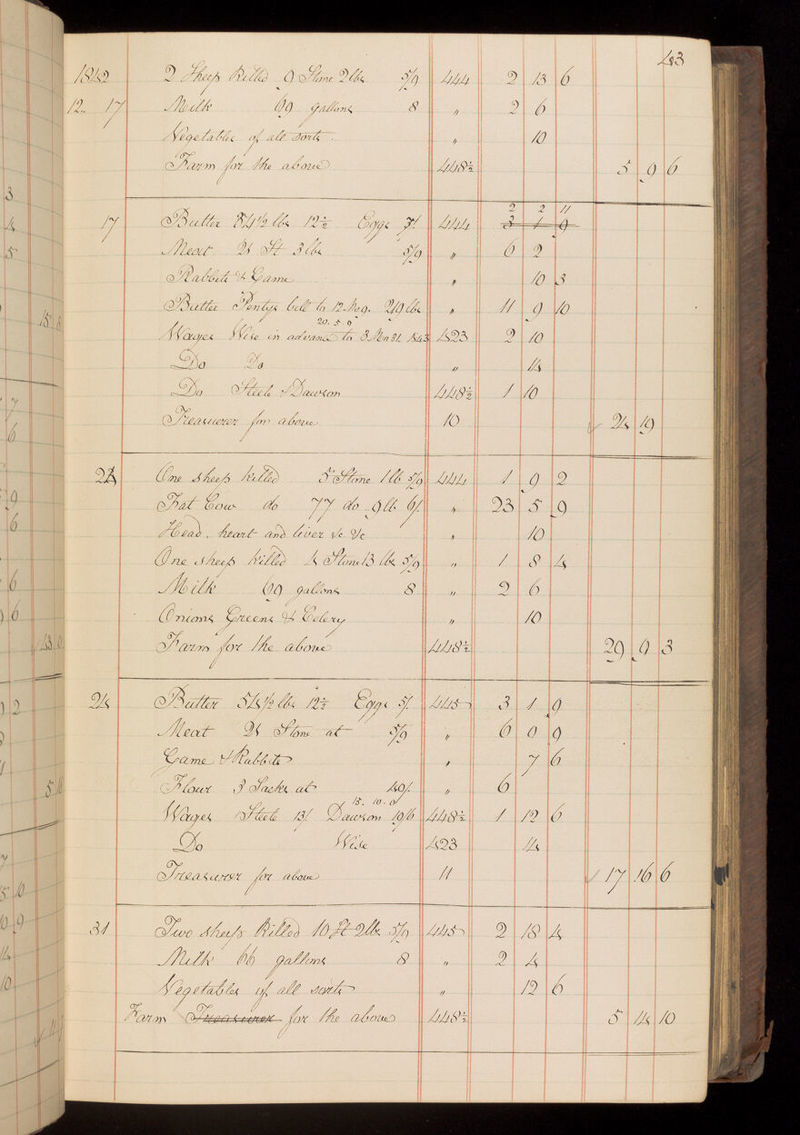 43
1842 2 Sheep Killed 9 Stone 2 lbs 5/9 444 2 13 6
12. 17 Milk 69 gallons 8 " 2 6
Vegetables of all sorts " 10
Farm for the above 448½ 5 9 6
2 2 11
17 Butter lbs 12½ Eggs 444 3 1 9
Meat 21 St 3 lbs 5/9 " 6 2
Rabbits & Game " 10 3
Butter bill to 12. Aug. 219 lbs " 11 9 10
20. 5 9
Wages Wise in advance to 3. Mar 31. 1843 423 2 10
Do Do " 14
Do Steele & Dawson 448½ 1 10
Treasurer for above 10 24 19
24 One sheep killed 5 Stone 1 lb 5/9 444 1 9 2
Fat Cow do 77 do 9 lb 6/ " 23 5 9
Head, heart and liver &c &c " 10
One sheep killed 4 Stone 13 lbs 5/9 " 1 8 4
Milk 69 gallons 8 " 2 6
Onions Greens & Celery " 10
Farm for the above 448½ 29 9 3
24 Butter 54½ lbs 12½ Eggs 5/. 445 3 1 9
Meat 21 Stone at 5/9 " 6 0 9
Game & Rabbits " 7 6
Flour 3 Sacks at 40/. " 6
15. 10. 0
Wages Steele 13/ Dawson 19/6 448½ 1 12 6
Do Wise 423 14
Treasurer for above 11 17 16 6
31 Two sheep Killed 10 St 2 lbs 5/9 445 2 18 4
Milk 66 gallons 8 " 2 4
Vegetables of all sorts " 12 6
Farm Treasurer for the above 448½ 5 14 10